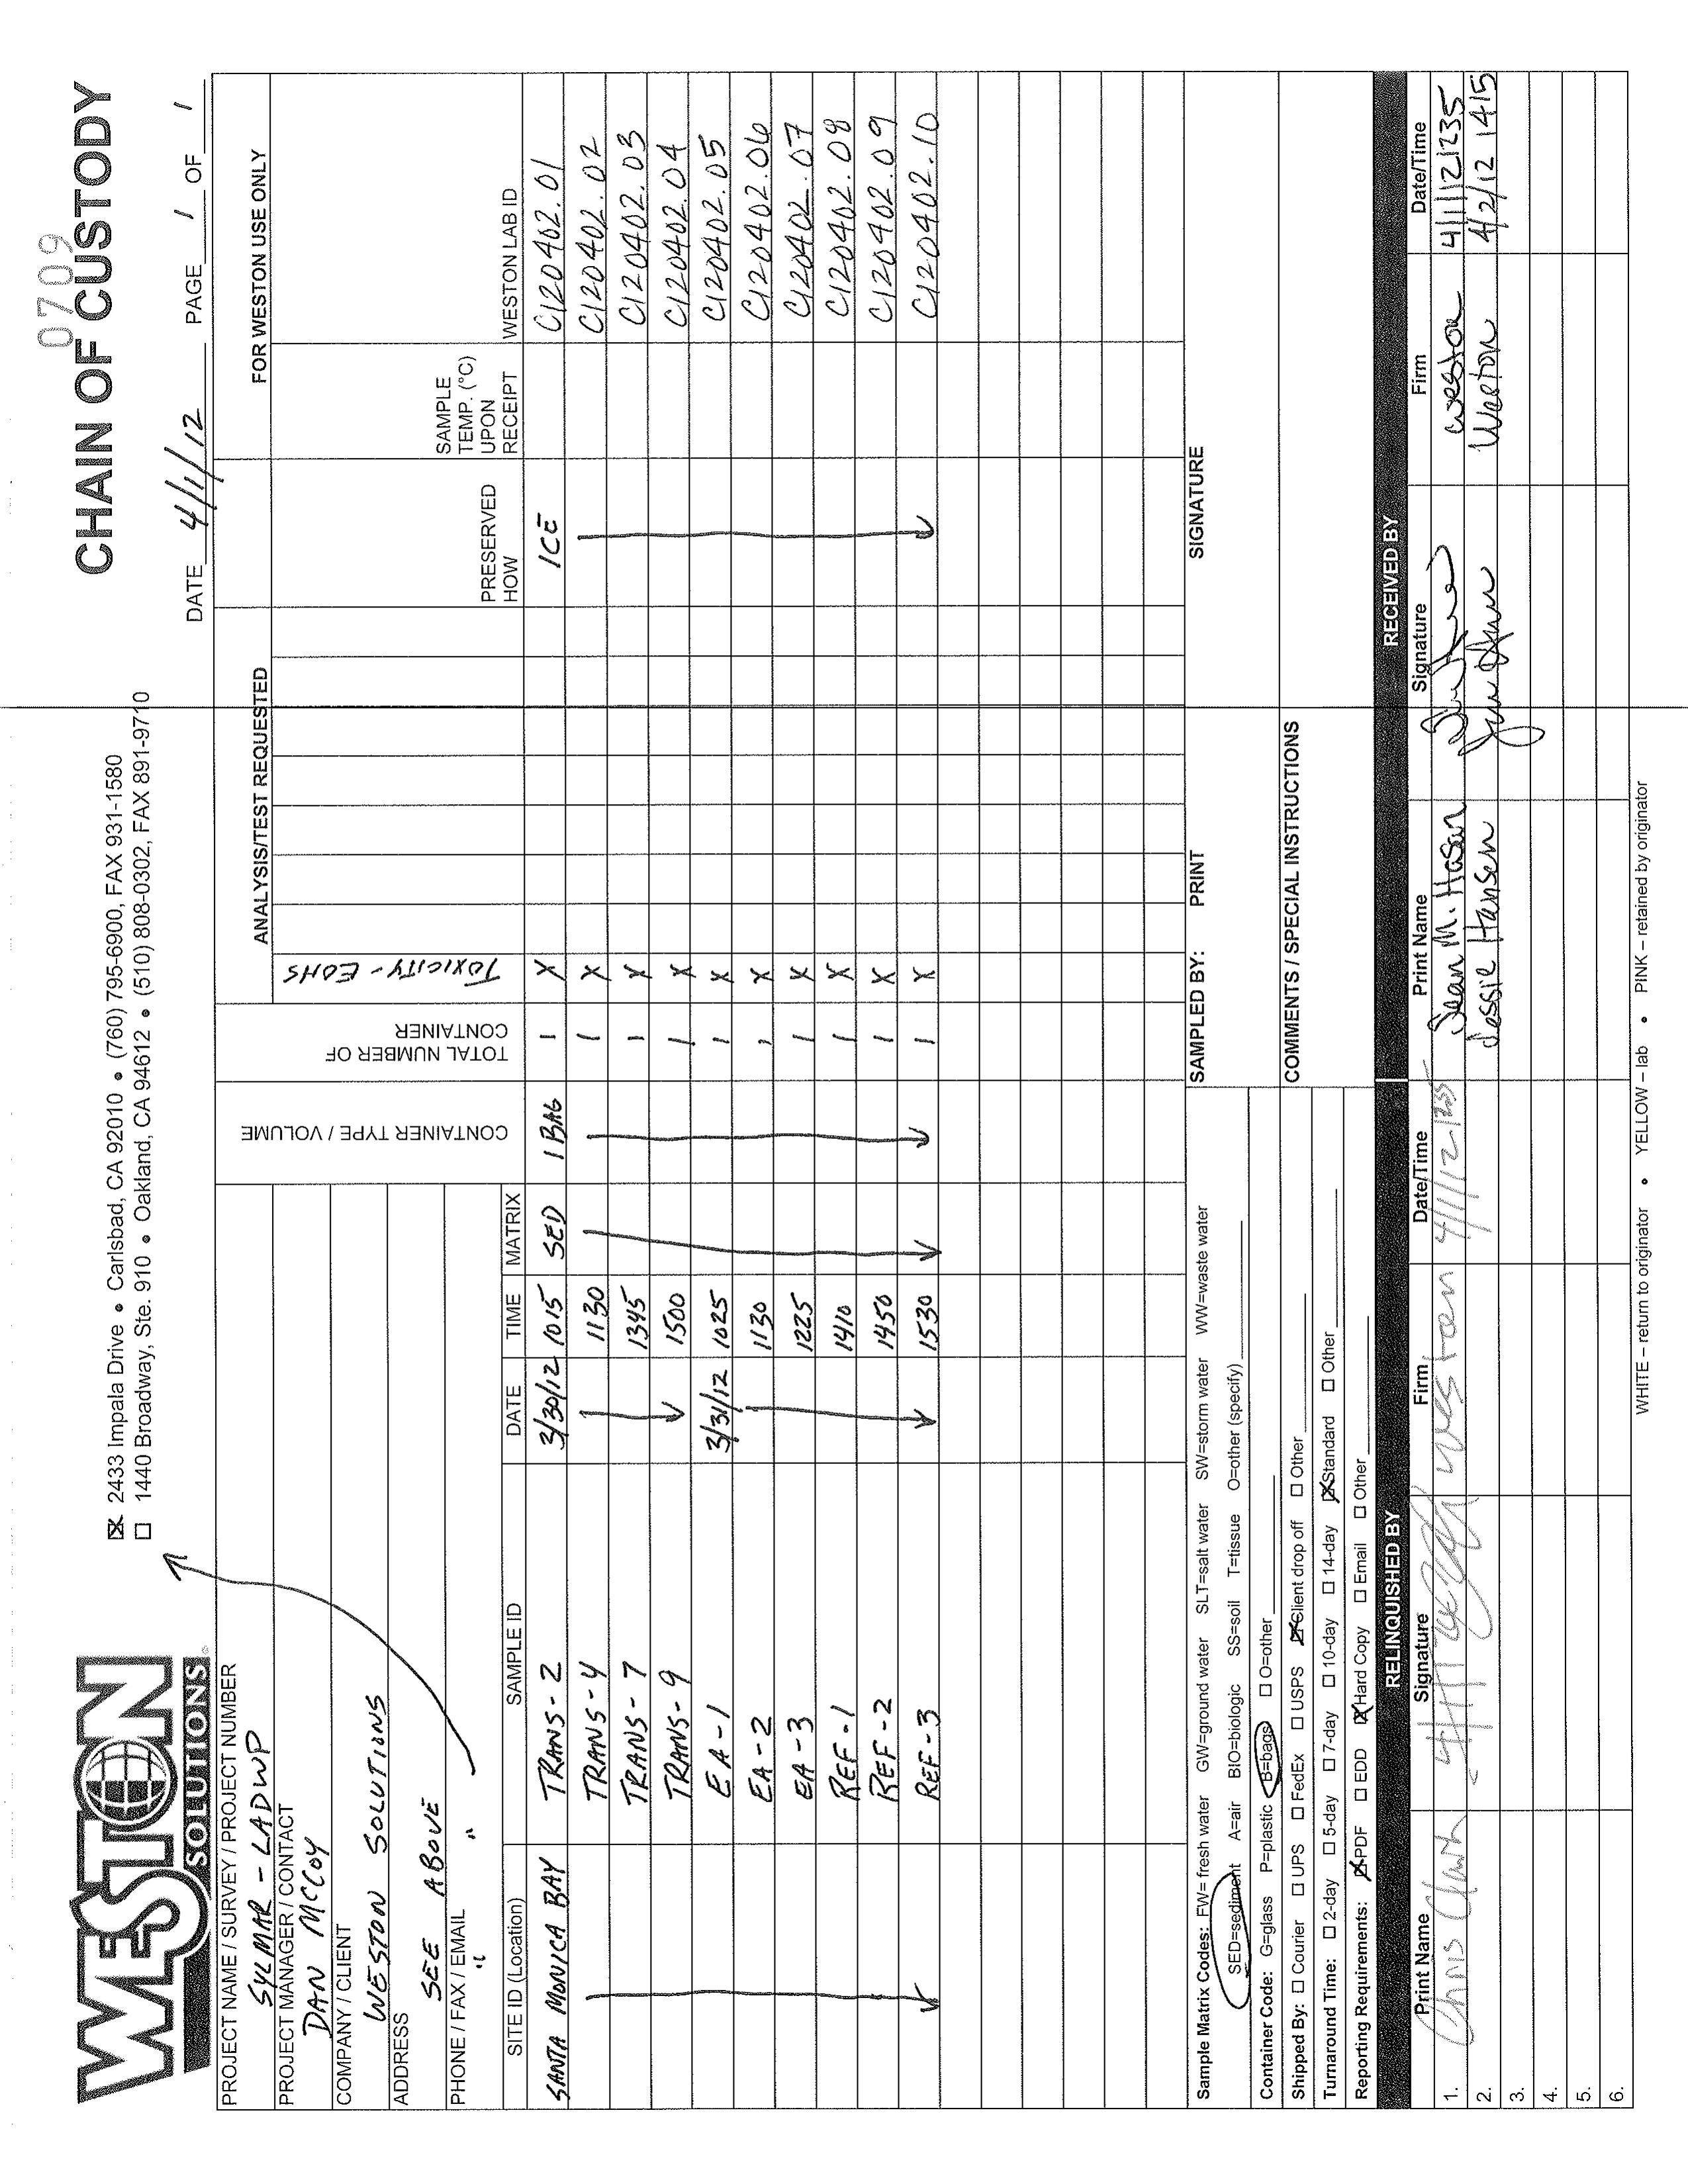 WESTON
SOLUTIONS
☒ 2433 Impala Drive • Carlsbad, CA 92010 • (760) 795-6900, FAX 931-1580
☐ 1440 Broadway, Ste. 910 • Oakland, CA 94612 • (510) 808-0302, FAX 891-9710
0709
CHAIN OF CUSTODY
DATE 4/1/12 PAGE 1 OF 1
PROJECT NAME / SURVEY / PROJECT NUMBER
SYLMAR - LADWP
PROJECT MANAGER / CONTACT
DAN MCCOY
COMPANY / CLIENT
WESTON SOLUTIONS
ADDRESS
SEE ABOVE
PHONE / FAX / EMAIL
" "
CONTAINER TYPE / VOLUME
TOTAL NUMBER OF CONTAINER
ANALYSIS/TEST REQUESTED
TOXICITY - EOHS
FOR WESTON USE ONLY
SITE ID (Location) SAMPLE ID DATE TIME MATRIX PRESERVED HOW SAMPLE TEMP. (°C) UPON RECEIPT WESTON LAB ID
SANTA MONICA BAY TRANS-2 3/30/12 1015 SED 1 BAG 1 X ICE C120402.01
TRANS-4 1130 1 X C120402.02
TRANS-7 1345 1 X C120402.03
TRANS-9 1500 1 X C120402.04
EA-1 3/31/12 1025 1 X C120402.05
EA-2 1130 1 X C120402.06
EA-3 1225 1 X C120402.07
REF-1 1410 1 X C120402.08
REF-2 1450 1 X C120402.09
REF-3 1530 1 X C120402.10
Sample Matrix Codes: FW= fresh water GW=ground water SLT=salt water SW=storm water WW=waste water
SED=sediment A=air BIO=biologic SS=soil T=tissue O=other (specify)
Container Code: G=glass P=plastic B=bags ☐ O=other
Shipped By: ☐ Courier ☐ UPS ☐ FedEx ☐ USPS ☒ Client drop off ☐ Other
Turnaround Time: ☐ 2-day ☐ 5-day ☐ 7-day ☐ 10-day ☐ 14-day ☒ Standard ☐ Other
Reporting Requirements: ☒ PDF ☐ EDD ☒ Hard Copy ☐ Email ☐ Other
SAMPLED BY: PRINT SIGNATURE
COMMENTS / SPECIAL INSTRUCTIONS
RELINQUISHED BY RECEIVED BY
Print Name Signature Firm Date/Time Print Name Signature Firm Date/Time
1. Chris Weston 4/1/12 1235 Sean M. Weston 4/1/12 1235
2. Jessie Hansen Weston 4/2/12 1415
3.
4.
5.
6.
WHITE – return to originator • YELLOW – lab • PINK – retained by originator